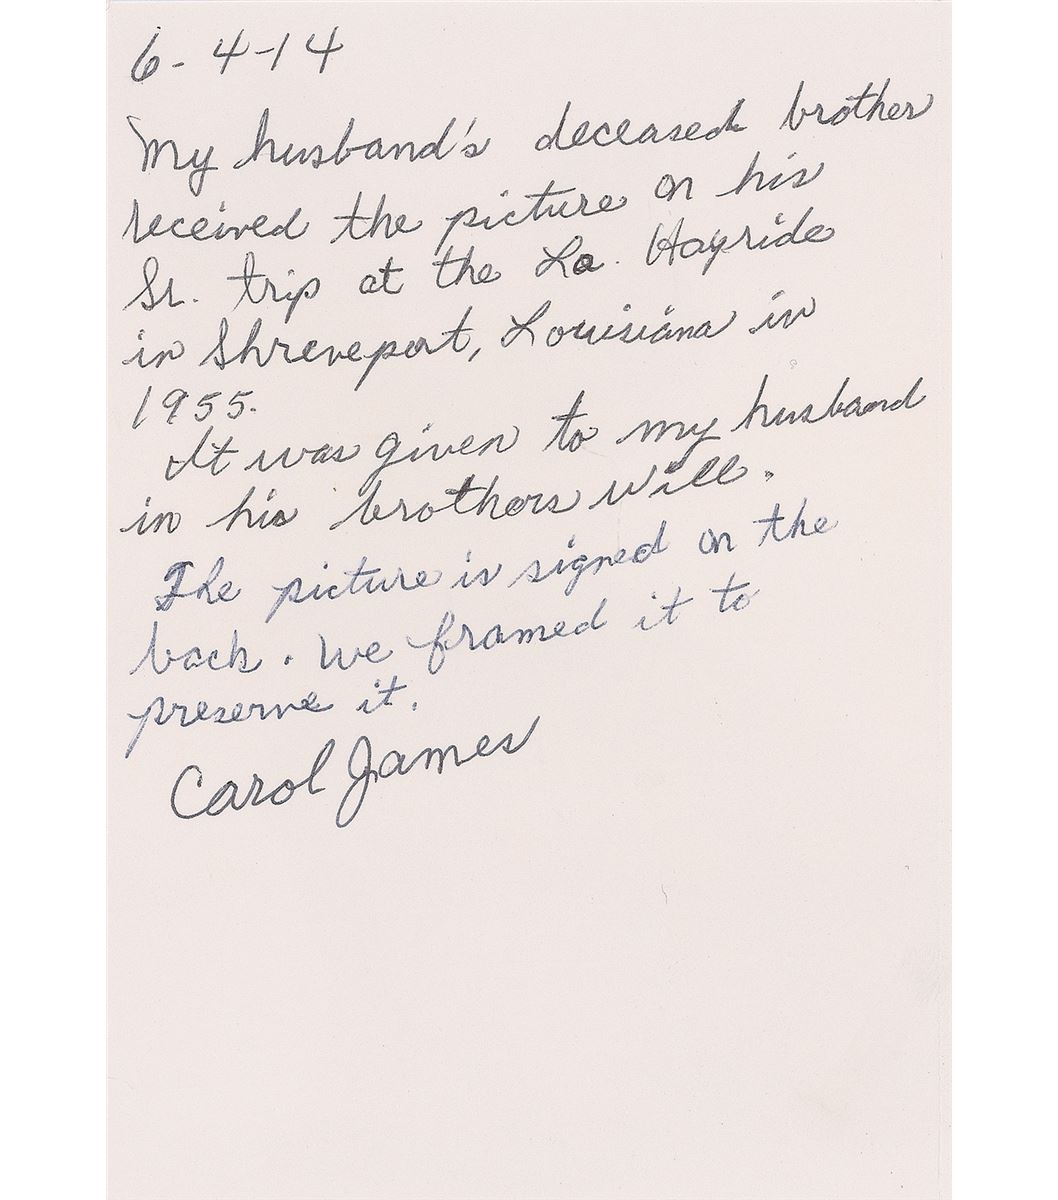 6-4-14
My husband's deceased brother
received the picture on his
Sr. trip at the La. Hayride
in Shreveport, Louisiana in
1955.
It was given to my husband
in his brothers will.
The picture is signed on the
back. We framed it to
preserve it.
Carol James